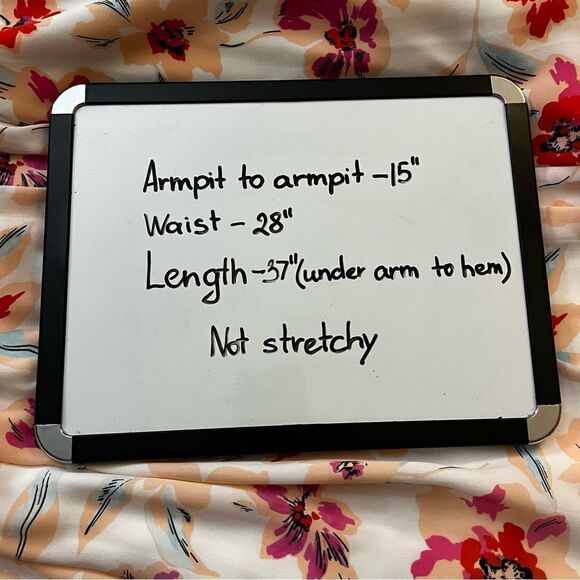 Armpit to armpit - 15"
Waist - 28"
Length - 37" (under arm to hem)
Not stretchy